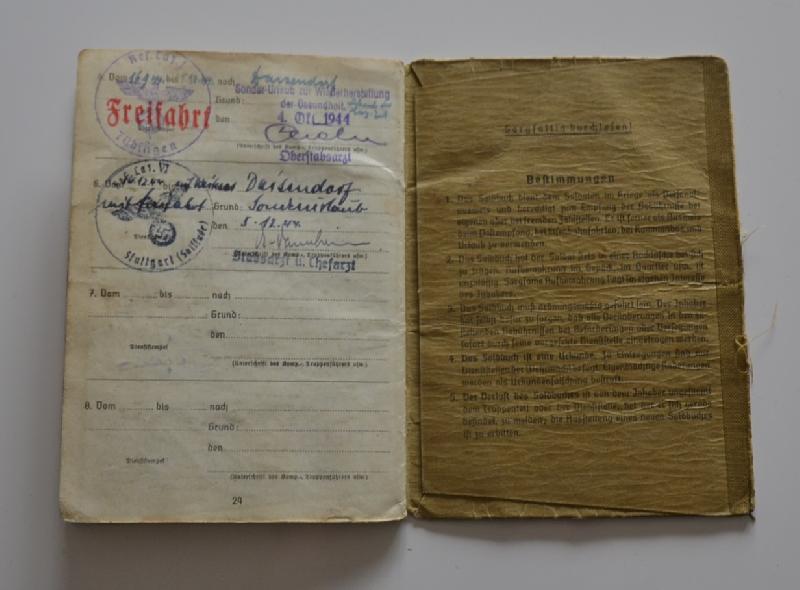 Vom 16.9.44 bis nach Daisendorf
Res. Laz. I
Tübingen
Freifahrt
Sonder-Urlaub zur Wiederherstellung
der Gesundheit.
Grund:
den 4. Okt. 1944
(Unterschrift des Komp.-, Truppenführers usw.)
Oberstabsarzt
6. Vom bis nach Daisendorf
Grund: Sonderurlaub
den 5.12.44.
Dienststempel
Stuttgart
(Unterschrift des Komp.-, Truppenführers usw.)
Stabsarzt u. Chefarzt
7. Vom bis nach
Grund:
den
Dienststempel
(Unterschrift des Komp.-, Truppenführers usw.)
8. Vom bis nach
Grund:
den
Dienststempel
(Unterschrift des Komp.-, Truppenführers usw.)
24
Sorgfältig durchlesen!
Bestimmungen
1. Das Soldbuch dient dem Soldaten im Kriege als Personal-
ausweis und berechtigt zum Empfang der Gebührnisse bei
eigenen oder bei fremden Zahlstellen. Es ist ferner als Ausweis
beim Postempfang, bei Eisenbahnfahrten, bei Kommandos und
Urlaub zu verwenden.
2. Das Soldbuch hat der Soldat stets in einer Rocktasche bei sich
zu tragen. Aufbewahrung im Gepäck, im Quartier usw. ist
unzulässig. Sorgsame Aufbewahrung liegt im eigenen Interesse
des Inhabers.
3. Das Soldbuch muß ordnungsmäßig geführt sein. Der Inhaber
hat selbst dafür zu sorgen, daß alle Veränderungen in den zu-
stehenden Gebührnissen bei Beförderungen oder Versetzungen
sofort durch seine vorgesetzte Dienststelle eingetragen werden.
4. Das Soldbuch ist eine Urkunde. Zu Eintragungen sind nur
Dienststellen des Heeres befugt. Eigenhändige Änderungen
werden als Urkundenfälschung bestraft.
5. Der Verlust des Soldbuches ist von dem Inhaber ungesäumt
dem Truppenteil oder der Dienststelle, bei der er sich gerade
befindet, zu melden; die Ausstellung eines neuen Soldbuches
ist zu erbitten.